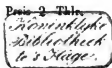 Preis 2 Thlr.
Koninklijke
Bibliotheek
te 's Hage.